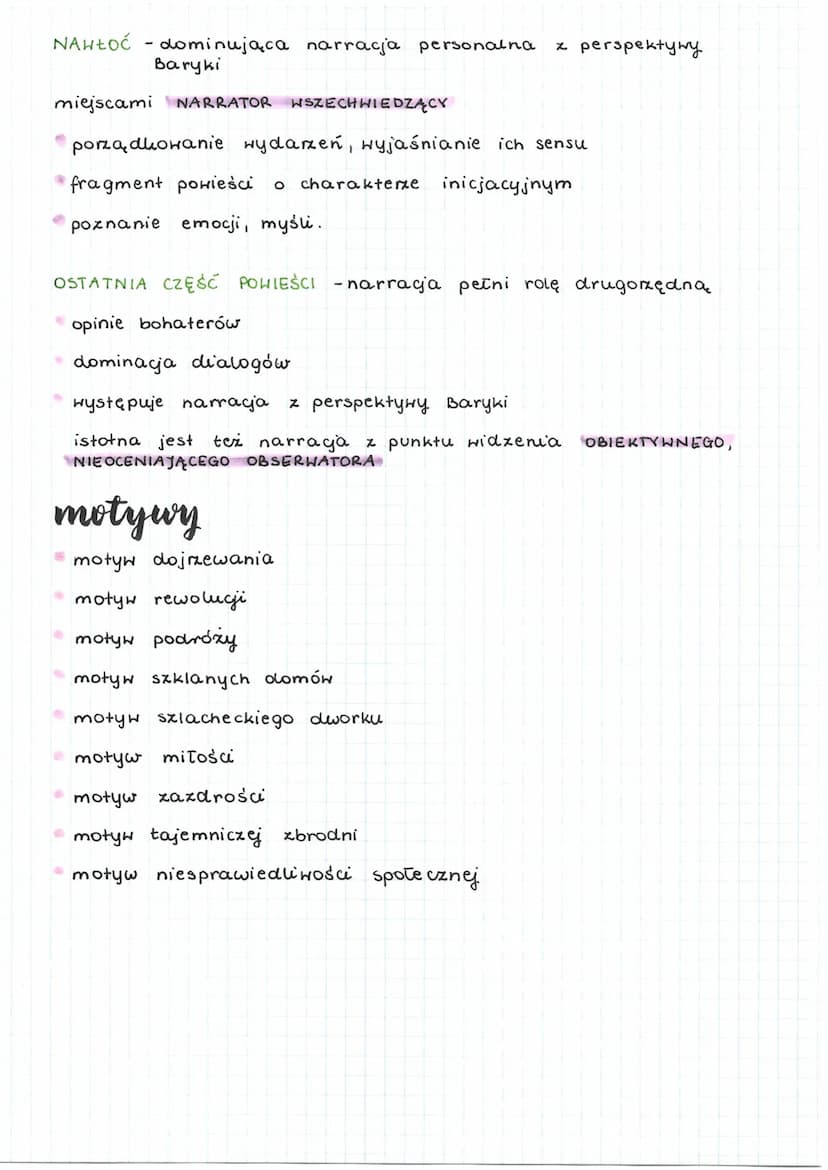 NAWŁOĆ - dominująca narracja personalna z perspektywy
Baryki
miejscami NARRATOR WSZECHWIEDZĄCY
porządkowanie wydarzeń, wyjaśnianie ich sensu
fragment powieści o charakterze inicjacyjnym
poznanie emocji, myśli.
OSTATNIA CZĘŚĆ POWIEŚCI - narracja pełni rolę drugorzędną
opinie bohaterów
dominacja dialogów
występuje narracja z perspektywy Baryki
istotna jest też narracja z punktu widzenia OBIEKTYWNEGO,
NIEOCENIAJĄCEGO OBSERWATORA
motywy
motyw dojrzewania
motyw rewolucji
motyw podróży
motyw szklanych domów
motyw szlacheckiego dworku
motyw miłości
motyw zazdrości
motyw tajemniczej zbrodni
motyw niesprawiedliwości społecznej